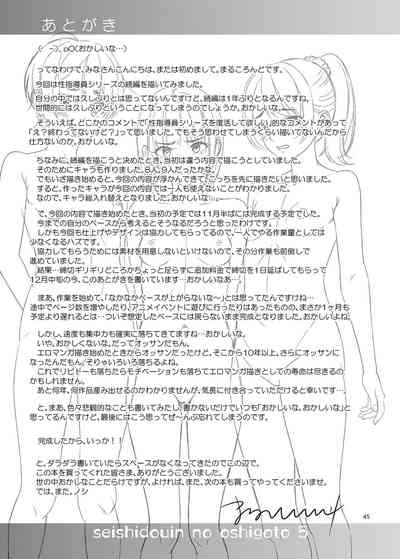 あとがき
( ´-`).oO(おかしいな…)
ってなわけで、みなさんこんにちは、または初めまして。まるころんとです。
今回は性指導員シリーズの続編を描いてみました。
自分の中では久しぶりとは思ってないんですけど、続編は1年ぶりとなるんですね。
世間的には久しぶりということになってしまうのでしょうか。おかしいな。
そういえば、どこかのコメントで「性指導員シリーズを復活してほしい」的なコメントがあって
「え?終わってないけど?」って思いました。でもそう思わせてしまうくらい描いてないんだから
仕方ないのか。おかしいな。
ちなみに、続編を描こうと決めたとき、当初は違う内容で描こうとしていました。
そのためにキャラも作りました。8人9人だったかな。
でもいざ描き始めると、今回の内容が浮かんできて、こっちを先に描きたいと思いました。
すると、作ったキャラが今回の内容では一人も使えないことがわかりました。
なので、キャラ総入れ替えとなりました。おかしいな。
で、今回の内容で描き始めたとき、当初の予定では11月半ばには完成する予定でした。
今までの自分のペースから考えるとそうなるだろうと思ったわけです。
しかも今回も仕上げやデザインは協力してもらってるので、一人でやる作業量としては
少なくなるハズです。
協力してもらうためには素材を用意しないといけないので、その分作業も前倒しで
進めていました。
結果…締切ギリギリどころかちょっと足らずに追加料金で締切を1日延ばしてもらって
12月中旬の今、このあとがきを書いています…おかしいなあ…
まあ、作業を始めて、「なかなかペースが上がらないな~」とは思ってたんですけどね…
途中でページ数を増やしたり、アニメイベントに遊びに行ったりはあったものの、まさか1ヶ月も
予定より遅れるとは…ついぞ想定したペースには戻らないまま完成となりました。おかしいよね。
しかし、速度も集中力も確実に落ちてきてますね…おかしいな。
いや、おかしくないな。だってオッサンだもん。
エロマンガ描き始めたときからオッサンだったけど、そこから10年以上、さらにオッサンに
なったんだもん/そりゃいろいろ落ちるよね。
これでリビドーも落ちたらモチベーションも落ちてエロマンガ描きとしての寿命は尽きるの
かもしれません。
あと何年、何作品産み出せるのかわかりませんが、気長に付き合っていただけると幸いです…
と、まあ、色々悲観的なことも書いてみたし、書かないだけでいつも「おかしいな、おかしいな」と
思ってるんですけど、最後にはこう思ってぜ~んぶ忘れてしまうのです。
完成したから、いっか!!
と、ダラダラ書いていたらスペースがなくなってきたのでこの辺で。
この本を買ってくれた皆さま、ありがとうございました。
世の中おかしなことだらけですが、よければ、また、次の本も買ってやってくださいませ。
では、また。ノシ
45
seishidouin no oshigoto 5